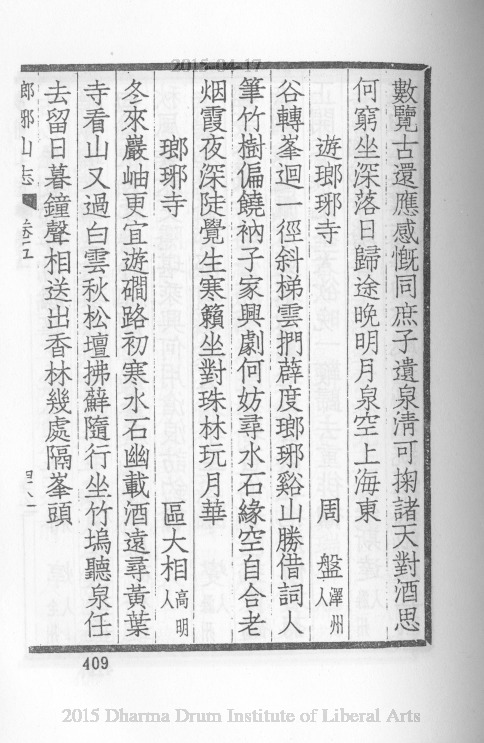 2015-04-17
數覽古還應感慨同庶子遺泉淸可掬諸天對酒思
何窮坐深落日歸途晚明月泉空上海東
遊瑯琊寺 周 盤澤州人
谷轉峯迴一徑斜梯雲捫薜度瑯琊谿山勝借詞人
筆竹樹偏饒衲子家興劇何妨尋水石緣空自合老
烟霞夜深陡覺生寒籟坐對珠林玩月華
瑯琊寺 區大相高明人
冬來巖岫更宜遊磵路初寒水石幽載酒遠尋黃葉
寺看山又過白雲秋松壇拂蘚隨行坐竹塢聽泉任
去留日暮鐘聲相送出香林幾處隔峯頭
瑯琊山志 卷五
409
2015 Dharma Drum Institute of Liberal Arts